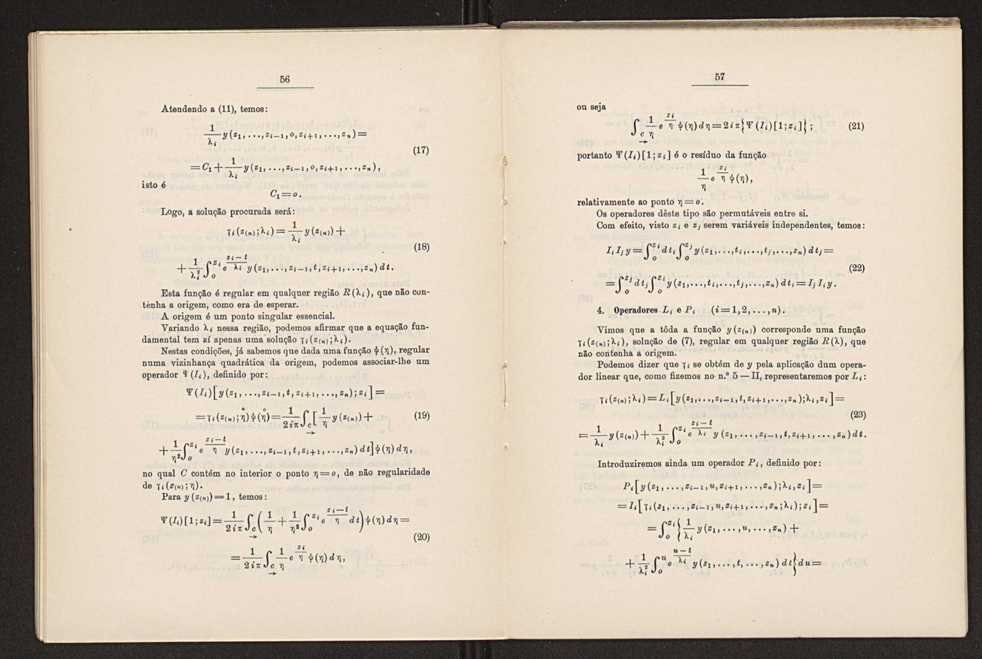 56
Atendendo a (11), temos:
1/λi y(z1, ..., zi−1, o, zi+1, ..., zn) =
= C1 + 1/λi y(z1, ..., zi−1, o, zi+1, ..., zn), (17)
isto é
C1 = o.
Logo, a solução procurada será:
γi(z(n); λi) = 1/λi y(z(n)) +
+ 1/λi² ∫o^zi e^((zi−t)/λi) y(z1, ..., zi−1, t, zi+1, ..., zn) dt. (18)
Esta função é regular em qualquer região R(λi), que não con-
tenha a origem, como era de esperar.
A origem é um ponto singular essencial.
Variando λi nessa região, podemos afirmar que a equação fun-
damental tem aí apenas uma solução γi(z(n); λi).
Nestas condições, já sabemos que dada uma função ψ(η), regular
numa vizinhança quadrática da origem, podemos associar-lhe um
operador Ψ(Ii), definido por:
Ψ(Ii)[y(z1, ..., zi−1, t, zi+1, ..., zn); zi] =
= γi(z(n); η) ψ(η) = 1/2iπ ∫C [1/η y(z(n)) + (19)
+ 1/η² ∫o^zi e^((zi−t)/η) y(z1, ..., zi−1, t, zi+1, ..., zn) dt] ψ(η) dη,
no qual C contém no interior o ponto η = o, de não regularidade
de γi(z(n); η).
Para y(z(n)) = 1, temos:
Ψ(Ii)[1; zi] = 1/2iπ ∫C (1/η + 1/η² ∫o^zi e^((zi−t)/η) dt) ψ(η) dη =
= 1/2iπ ∫C 1/η e^(zi/η) ψ(η) dη, (20)
57
ou seja
∫C 1/η e^(zi/η) ψ(η) dη = 2iπ{Ψ(Ii)[1; zi]}; (21)
portanto Ψ(Ii)[1; zi] é o resíduo da função
1/η e^(zi/η) ψ(η),
relativamente ao ponto η = o.
Os operadores dêste tipo são permutáveis entre si.
Com efeito, visto zi e zj serem variáveis independentes, temos:
Ii Ij y = ∫o^zi dti ∫o^zj y(z1, ..., ti, ..., tj, ..., zn) dtj =
= ∫o^zj dtj ∫o^zi y(z1, ..., ti, ..., tj, ..., zn) dti = Ij Ii y. (22)
4. Operadores Li e Pi (i = 1, 2, ..., n).
Vimos que a tôda a função y(z(n)) corresponde uma função
γi(z(n); λi), solução de (7), regular em qualquer região R(λ), que
não contenha a origem.
Podemos dizer que γi se obtém de y pela aplicação dum opera-
dor linear que, como fizemos no n.º 5 — II, representaremos por Li:
γi(z(n); λi) = Li[y(z1, ..., zi−1, t, zi+1, ..., zn); λi, zi] =
= 1/λi y(z(n)) + 1/λi² ∫o^zi e^((zi−t)/λi) y(z1, ..., zi−1, t, zi+1, ..., zn) dt. (23)
Introduziremos ainda um operador Pi, definido por:
Pi[y(z1, ..., zi−1, u, zi+1, ..., zn); λi, zi] =
= Ii[γi(z1, ..., zi−1, u, zi+1, ..., zn; λi); zi] =
= ∫o^zi {1/λi y(z1, ..., u, ..., zn) +
+ 1/λi² ∫o^u e^((u−t)/λi) y(z1, ..., t, ..., zn) dt} du =